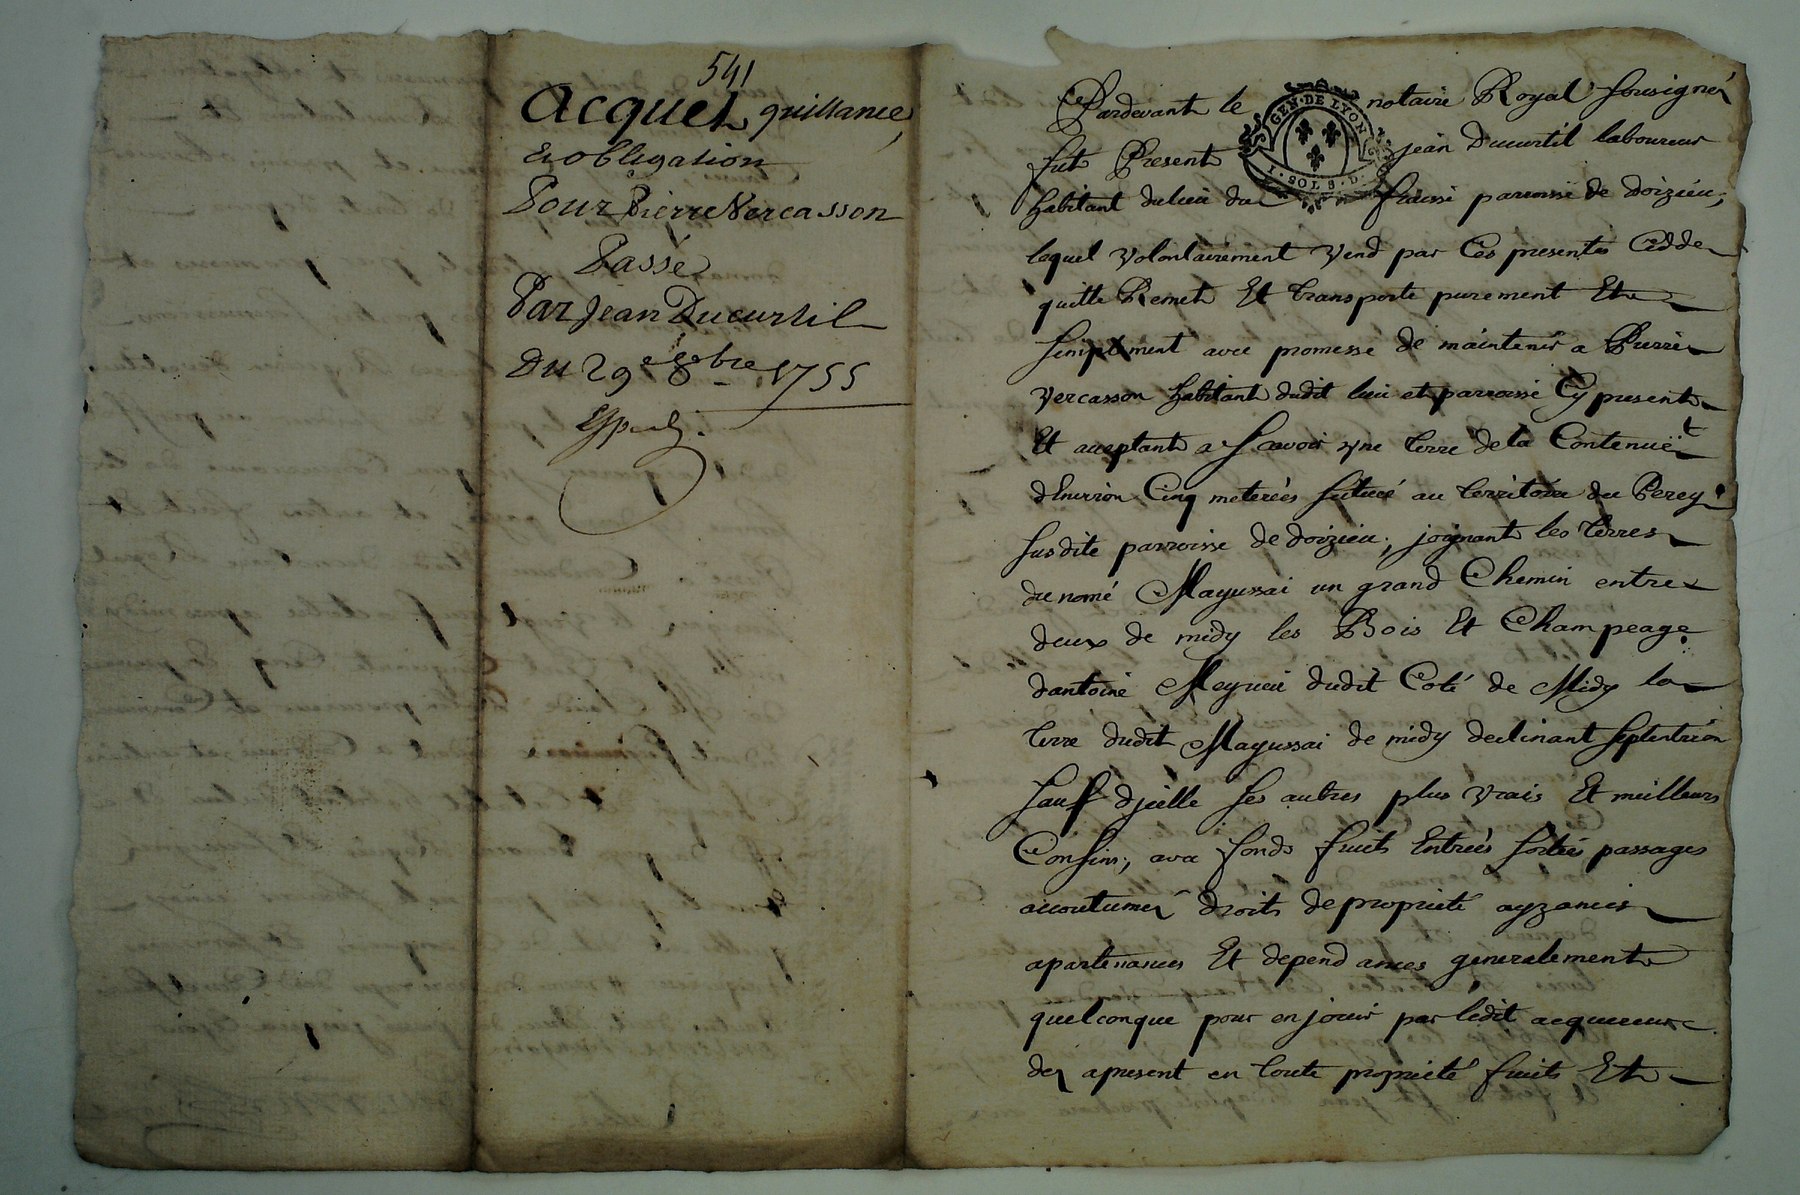 541
Acquet quittance,
Et obligation
Pour Pierre Vercasson
Passé
Par Jean Ducurtil
Du 29e 8bre 1755
Pardevant le notaire Royal sousigné
fut Present jean Ducurtil laboureur
habitant du lieu du fraissi parroisse de doizieu,
GEN · DE LYON
1 · SOL 8 · D
lequel volontairement vend par Ces presentes Cedde
quitte Remet Et transporte purement Et
simplement avec promesse de maintenir a Pierre
Vercasson habitant dudit lieu et parroisse Cy present
Et aceptant a scavoir une terre de la Contenuë
d'Environ Cinq meterées situeé au territoire du Perey
susdite parroisse de doizieu, joignant les terres
du nomé Mayussai un grand Chemin entre
deux de midy les Bois Et Champeage
dantoine dudit Coté de Midy la
terre dudit Mayussai de midy declinant septentrion
sauf djcelle ses autres plus vrais Et meilleurs
Confins, avec fonds fruits Entrées sorties passages
accoutumés droits de proprieté ayzances
apartenances Et dependances generalement
quelconque pour en jouir par ledit acquereur
des apresent en toute proprieté fruits Et